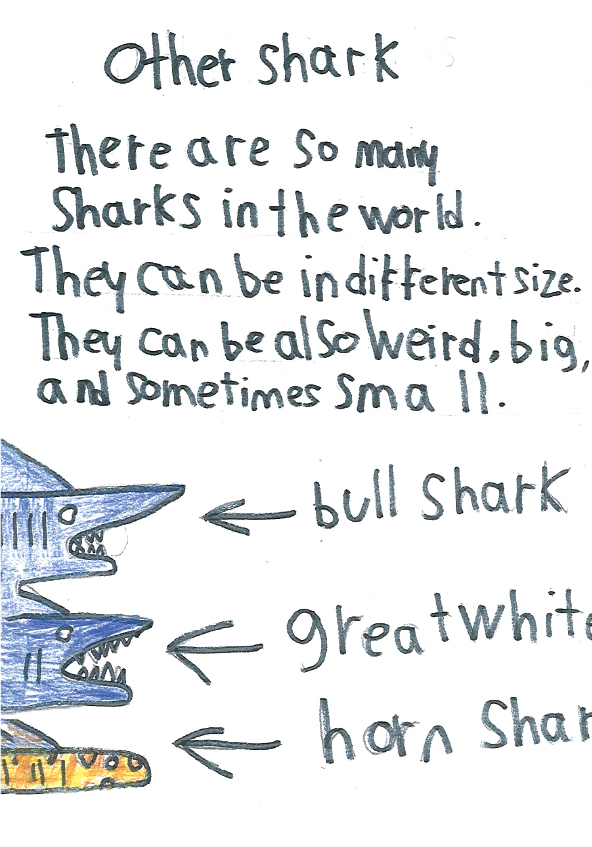 Other shark
There are so many
Sharks in the world.
They can be in different size.
They can be also weird, big,
and sometimes small.
bull shark
great white
horn Shar